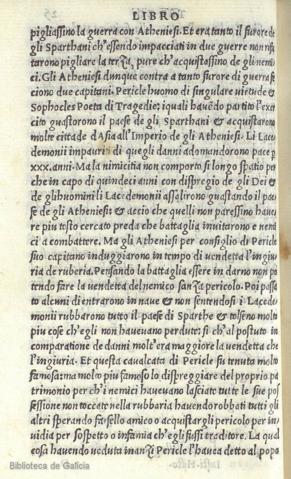 LIBRO
pigliassino la guerra con Atheniesi. Et era tanto il furore de
gli Sparthani ch'essendo impacciati in due guerre non rifiu
tarono pigliare la terza, pure ch'acquistassino de gli nemi
ci. Gli Atheniesi dunque contra a tanto furore di guerra fe
ciono due capitani. Pericle huomo di singulare uietude &
Sophocles Poeta di Tragedie: iquali havendo partito l'exer
cito guastorono il paese de gli Sparthani & acquistarono
molte cittade d'Asia all'Imperio de gli Atheniesi. Li Lace
demonii impauriti di quegli danni adomandorono pace p
xxx. anni. Ma la nimicitia non comporto si longo spatio per
che in capo di quindeci anni con dispregio de gli Dei &
de glihuomini li Lacedemonii assalirono guastando il pae
se de gli Atheniesi: & accio che quelli non paressino have
re piu tosto cercato preda che battaglia invitarono e nemi
ci a combattere. Ma gli Atheniesi per consiglio di Pericle
suo capitano induggiarono in tempo di vendetta l'ingiu
ria de ruberia. Pensando la battaglia essere in darno non po
tendo fare la vendetta del nemico sanza pericolo. Poi passa
to alcuni di entrarono in nave & non sentendosi i Lacede
monii rubbarono tutto il paese di Sparthe & tolseno molto
piu cose ch'egli non havevano perdute: si ch'al postuto in
comparatione de danni molt'era maggiore la vendetta che
l'ingiuria. Et questa cavalcata di Pericle fu tenuta molto
famosa: ma molto piu famoso lo dispreggiare del proprio pa
trimonio per ch'i nemici havevano lasciato tutte le sue pos
sessione non toccate nella rubbaria havendo robbati tutti gli
altri sperando farsello amico o acquistargli pericolo per in
vidia per sospetto o infamia ch'egli fussi traditore. La qual
cosa havendo veduta inanzi Pericle l'haveva detto al popo
Biblioteca de Galicia